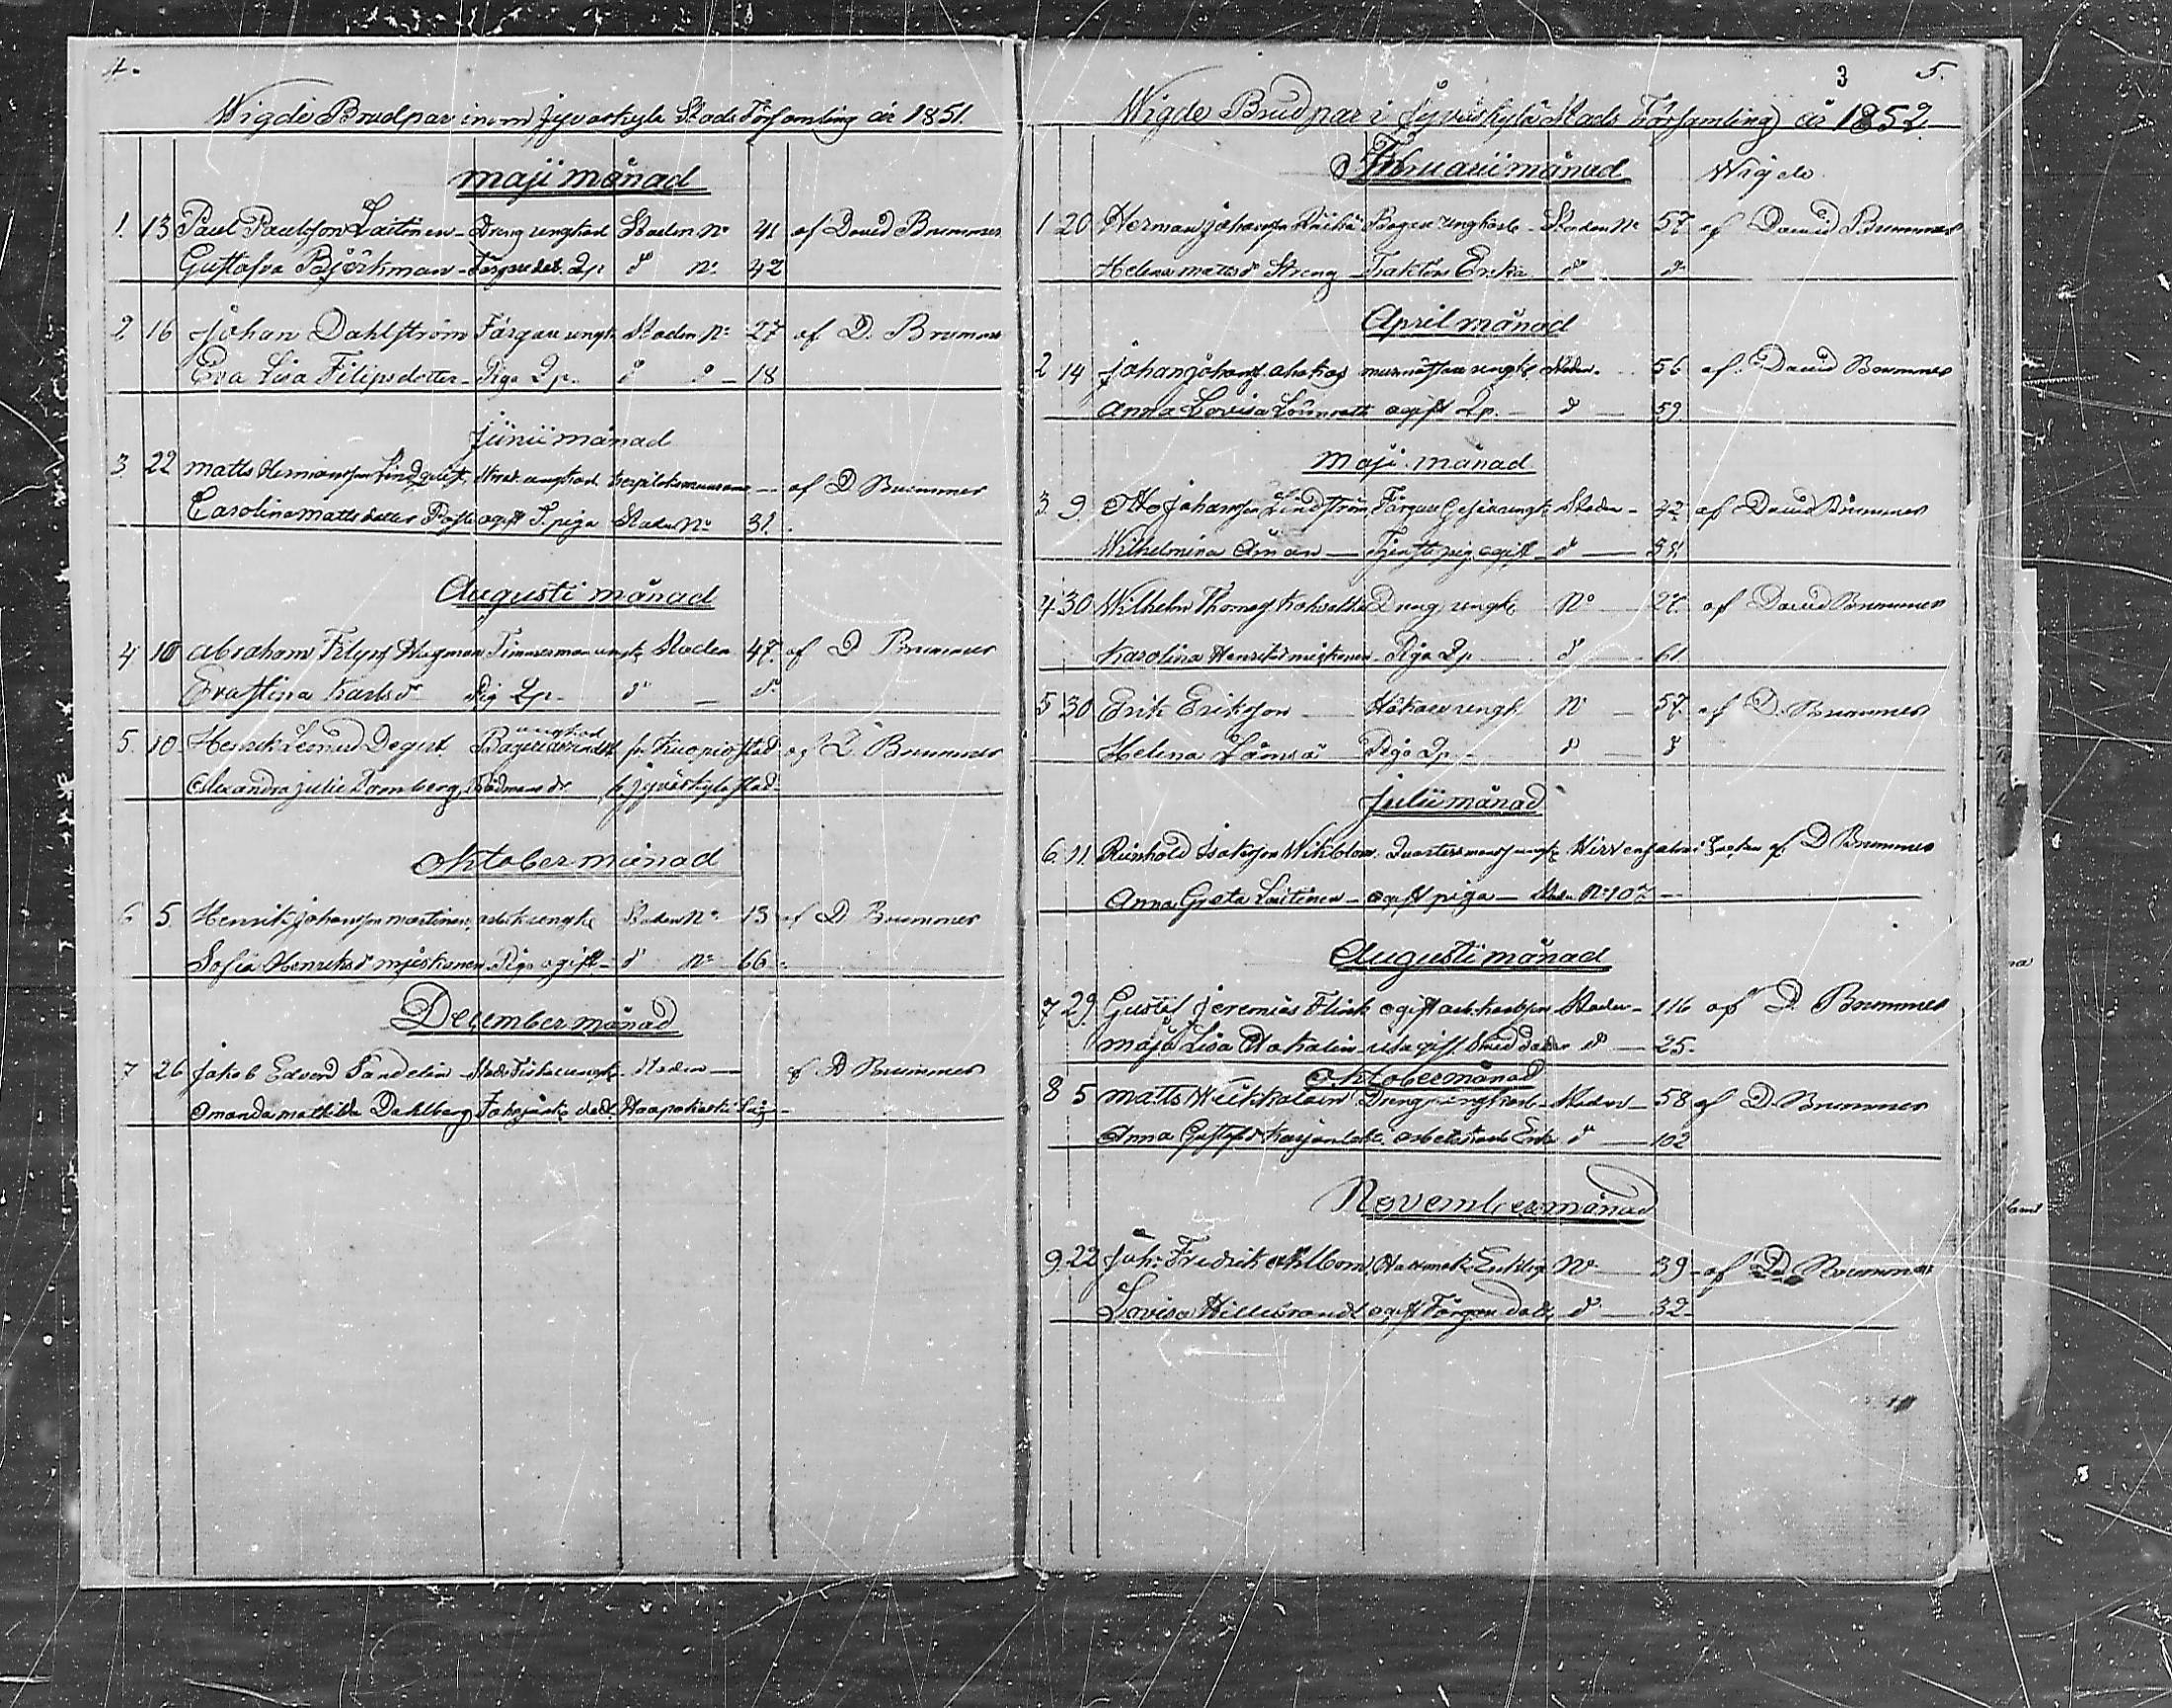 4.
Wigde Brudpar inom Jyväskyla Stads Församling år 1851.
Maji månad
1. 13 Paul Paulsson Laitinen - Dreng ungkarl Staden No 41 af David Brummer
Gustafva Björkman - dot. Qp d No 42
2 16 Johan Dahlström Färgare ungk Staden No 27 af D. Brummer
Eva Lisa Filipsdotter - Piga Qp. d d - 18
Junii månad
3 22 Matts Hermansson Lindqvist, ungkarl - af D Brummer
Carolina Mattsdotter ogift T. piga Staden No 31.
Augusti månad
4 10 Abraham Filips Wagman Timmerman ungk Staden 47. af D Brummer
Eva Stina Karlsd Pig Qp. d - d.
5. 10. Henrik Leonard Degert Bagare ungkarl fr Kuopio stad af D Brummer
Alexandra Julie Tornberg, Rådmans dr fr Jyväskyla stad
Oktober månad
6 5. Henrik Johansson Martinen, ungk Staden No 13 af D Brummer
Sofia Henriksd Miskanen Piga ogift - d No 66.
December månad
7 26 Jakob Edvard Sandelin - Stads Fiskal ungk - Staden - af D Brummer
Amanda Mathilda Dahlberg dott.
3 5.
Wigde Brudpar i Jyväskylä Stads Församling år 1852
Februarii månad Wigde
1 20 Herman Johansson Bagare ungkarl - Staden No 57 af David Brummer
Helena Mattsd Streng - Enka d d
April månad
2 14 Johan Johans ungk, Staden. 56 af David Brummer
Anna Lovisa Lönnroth ogift Qp. - d - 59
Maji månad
3 9. Otto Johansson Lindström, Färgare ungk Staden - 42 af David Brummer
Wilhelmina Åman - Tjenste pig. ogift - d -
4 30 Wilhelm Thomas Dreng ungk No - 27 af David Brummer
Karolina Henriksd Miskanen - Piga Qp - d - 61
5 30 Erik Eriksson - ungk No - 57 af D. Brummer
Helena Jämsä - Piga Qp - d - d
Julii månad
6. 11. Reinhold Isaksson Wikblom. ungk af D Brummer
Anna Greta Laitinen - ogift piga - Staden No 107 -
Augusti månad
7 29. Gustaf Jeremias Flink ogift Staden - 116 af D. Brummer
Maja Lisa ogift d - 25.
Oktober månad
8 5 Matts Dreng ungkarl - Staden - 58 af D. Brummer
Anna Gustafsd Enka d - 102
November månad
9. 22 Joh: Fredrik Ahlbom, Enkling No - 39 - af D. Brummer
Lovisa Hillebrandt ogift Färgare dott. d - 32 -